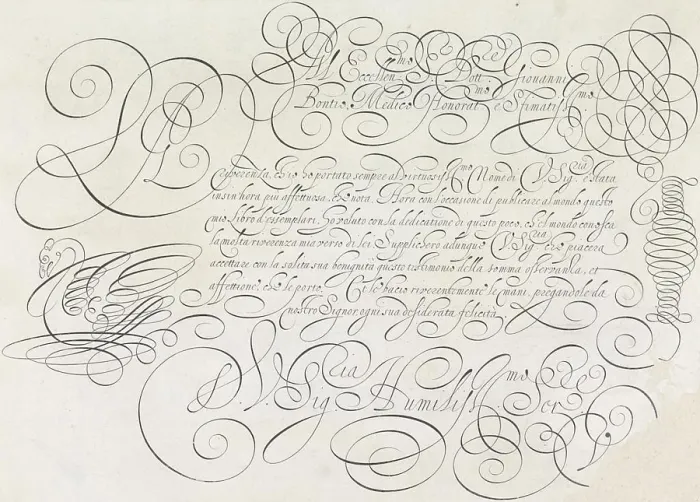 All Eccellen.mo S.re Dott. Giovanni
Bontio, Medico Honorat. e Stimatiss.mo
La riverenza, ch'io ho portato sempre al virtuosiss.mo Nome di V. Sig.ria è stata
insin'hora più affettuosa, che nota. Hora con l'occasione di publicare al mondo questo
mio libro d'essemplari, ho voluto con la dedicatione di questo poco, ch'el mondo conosca
la molta riverenza mia verso di lei. Supplichero adunque V. Sig.ria che piacera
accettare con la solita sua benignità questo testimonio della somma osservanza, et
affettione, che le porto. Et le bacio riverentemente le mani, pregandole da
nostro Signor ogni sua desiderata felicità.
D. V. Sig.ria Humiliss.mo Ser.re